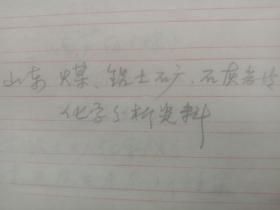 山东 煤、铝土矿、石灰岩的
化学分析资料